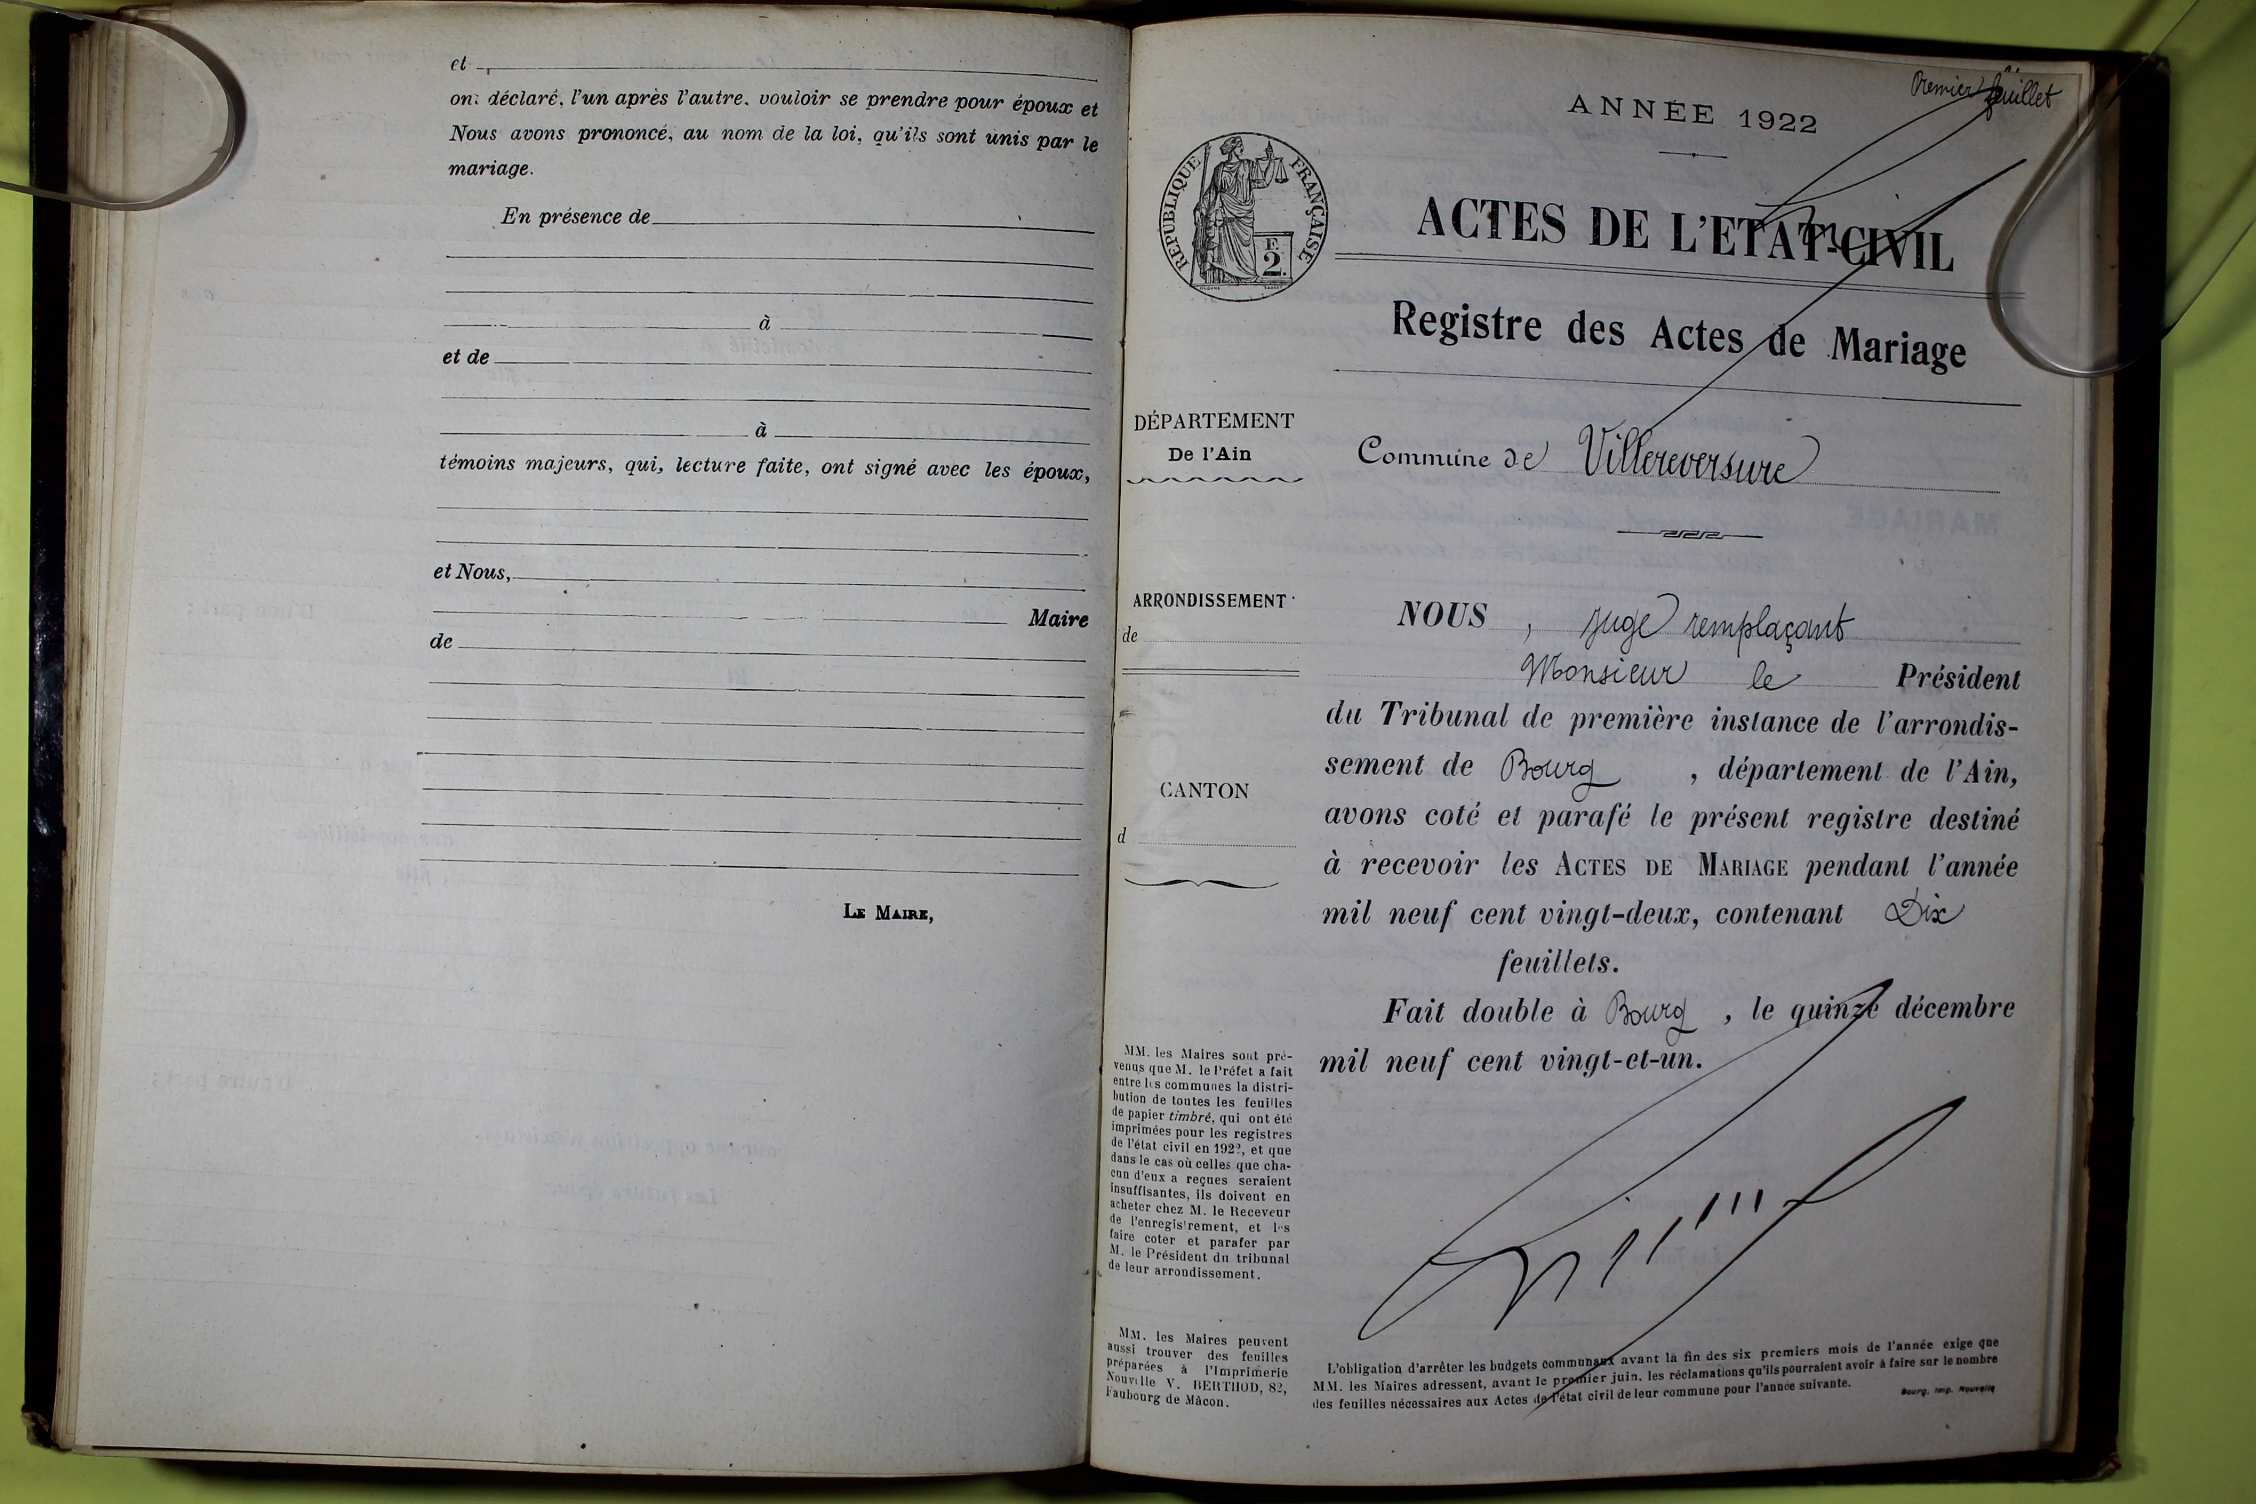 et
ont déclaré, l'un après l'autre, vouloir se prendre pour époux et
Nous avons prononcé, au nom de la loi, qu'ils sont unis par le
mariage.
En présence de
à
et de
à
témoins majeurs, qui, lecture faite, ont signé avec les époux,
et Nous,
Maire
de
LE MAIRE,
Premier feuillet
ANNÉE 1922
RÉPUBLIQUE FRANÇAISE
F.
2.
ACTES DE L'ETAT-CIVIL
Registre des Actes de Mariage
DÉPARTEMENT
De l'Ain
Commune de Villereversure
ARRONDISSEMENT
de
CANTON
d
NOUS, Juge remplaçant
Monsieur le Président
du Tribunal de première instance de l'arrondis-
sement de Bourg, département de l'Ain,
avons coté et parafé le présent registre destiné
à recevoir les ACTES DE MARIAGE pendant l'année
mil neuf cent vingt-deux, contenant Dix
feuillets.
Fait double à Bourg, le quinze décembre
mil neuf cent vingt-et-un.
MM. les Maires sont pré-
venus que M. le Préfet a fait
entre les communes la distri-
bution de toutes les feuilles
de papier timbré, qui ont été
imprimées pour les registres
de l'état civil en 1922, et que
dans le cas où celles que cha-
cun d'eux a reçues seraient
insuffisantes, ils doivent en
acheter chez M. le Receveur
de l'enregistrement, et les
faire coter et parafer par
M. le Président du tribunal
de leur arrondissement.
MM. les Maires peuvent
aussi trouver des feuilles
préparées à l'Imprimerie
Nouvelle V. BERTHOD, 82,
Faubourg de Mâcon.
L'obligation d'arrêter les budgets communaux avant la fin des six premiers mois de l'année exige que
MM. les Maires adressent, avant le premier juin, les réclamations qu'ils pourraient avoir à faire sur le nombre
des feuilles nécessaires aux Actes de l'état civil de leur commune pour l'année suivante.
Bourg, Imp. Nouvelle